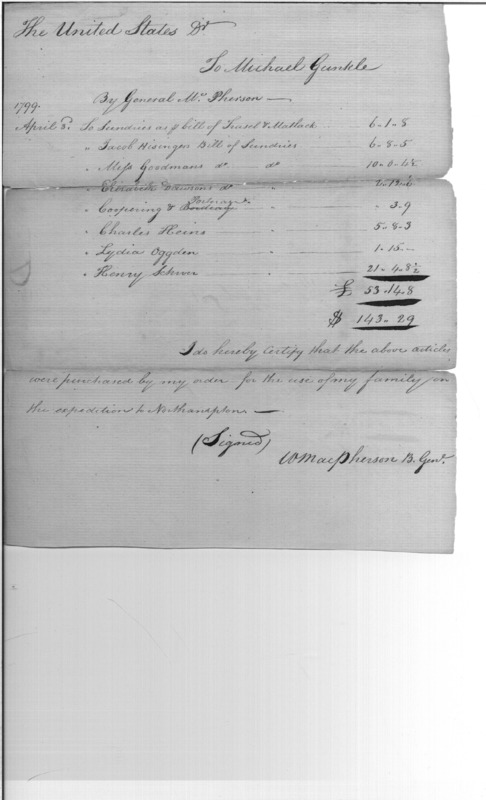 The United States Dr
To Michael Gunkle
By General Mc Pherson —
1799.
April 3. To Sundries as p bill of Trusel & Matlack .. 6 - 1 - 8
" Jacob Hisingers Bill of Sundries 6 - 8 - 5
" Mess Goodmans do do 10 - 0 -
" Frederick Dawsons do "
Porterage
" Coopering & - 3 .. 9
" Charles Heins - 5 - 8 - 3
" Lydia Oggden - 1 - 15 -
" Henry - 21 - 4 - 8½
£ 53 - 14 - 8
$ 143 - 29
I do hereby Certify that the above articles
were purchased by my order for the use of my family on
the expedition to Northampton. —
(Signed)
W Macpherson B. Genl.